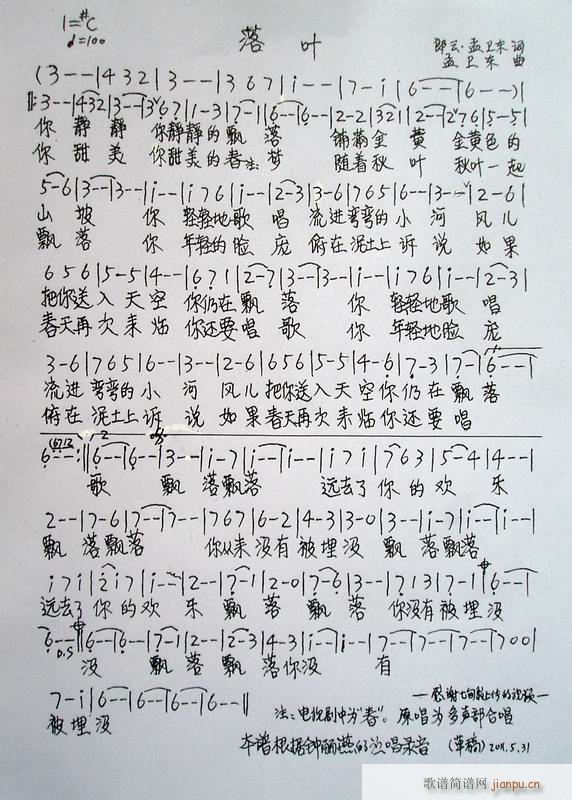 1=#C
♩=100
落叶
郎云·孟卫东 词
孟卫东 曲
(3 - - | 4 3 2 | 3 - - | 3 6 7 | i - - | 7 - i | 6 - - | 6 - - )|
‖: 3 - - | 4 3 2 | 3 - - | 3 6 7 | 1 - 3 | 7 - 1 | 6 - - | 6 - - | 2 - 2 | 3 2 1 | 2 - - | 2 7 6 | 5 - 5 |
你 静 静 你静静的飘 落 铺满金 黄 金黄色的
你 甜 美 你甜美的春注:梦 随着秋 叶 秋叶一起
5 - 6 | 3 - - | 3 - - | i - - | i 7 6 | i - - | 2 - 3 | 3 - 6 | 7 6 5 | 6 - - | 3 - - | 2 - 6 |
山 坡 你 轻轻地歌 唱 流进弯弯的小 河 风儿
飘 落 你 年轻的脸 庞 俯在泥土上诉 说 如果
6 5 6 | 5 - 5 | 4 - - | 6 7 1 | 2 - 7 | 3 - - | 3 - - | i - - | i 7 6 | i - - | 2 - 3 |
把你送入天空 你仍在飘 落 你 轻轻地歌 唱
春天再次来临 你还要唱 歌 你 年轻地脸 庞
3 - 6 | 7 6 5 | 6 - - | 3 - - | 2 - 6 | 6 5 6 | 5 - 5 | 4 - 6 | 7 - 3 | 7 - 1 | 6 - - |
流进弯弯的小 河 风儿把你送入天空你仍在飘落
俯在泥土上诉 说 如果春天再次来临你还要唱
6 - - :‖ 6 - - | 6 - - | 3 - - | i - 7 | i - - | i - - | i 7 i | 7 6 3 | 5 - 4 | 4 - - |
歌 飘 落飘落 远去了你的欢 乐
2 - - | 7 - 6 | 7 - - | 7 - - | 3 6 7 | 6 - 2 | 4 - 3 | 3 - 0 | 3 - - | i - 7 | i - - | i - - |
飘 落飘落 你从来没有被埋没 飘 落飘落
i 7 i | 2 i 7 | i - - | 2 - - | 7 - 1 | 2 - 0 | 7 - 6 | 3 - - | 7 1 3 | 7 - 1 | 6 - - |
远去了你的欢 乐 飘 落 飘 落 你没有被埋没
6 - - ‖ 6 - - | 6 - - | 7 - 1 | 2 - - | 2 - 3 | 4 - 3 | i - - | i - - | 7 - - | 7 - - | 7 - - | 7 0 0 |
D.S
没 飘 落飘 落你没 有
7 - i | 6 - - | 6 - - | 6 - - | 6 - - ‖
被埋没
注:电视剧中为"春"。原唱为多声部合唱
本谱根据钟丽燕的演唱录音 (草稿) 2011.5.31
歌谱简谱网
jianpu.cn